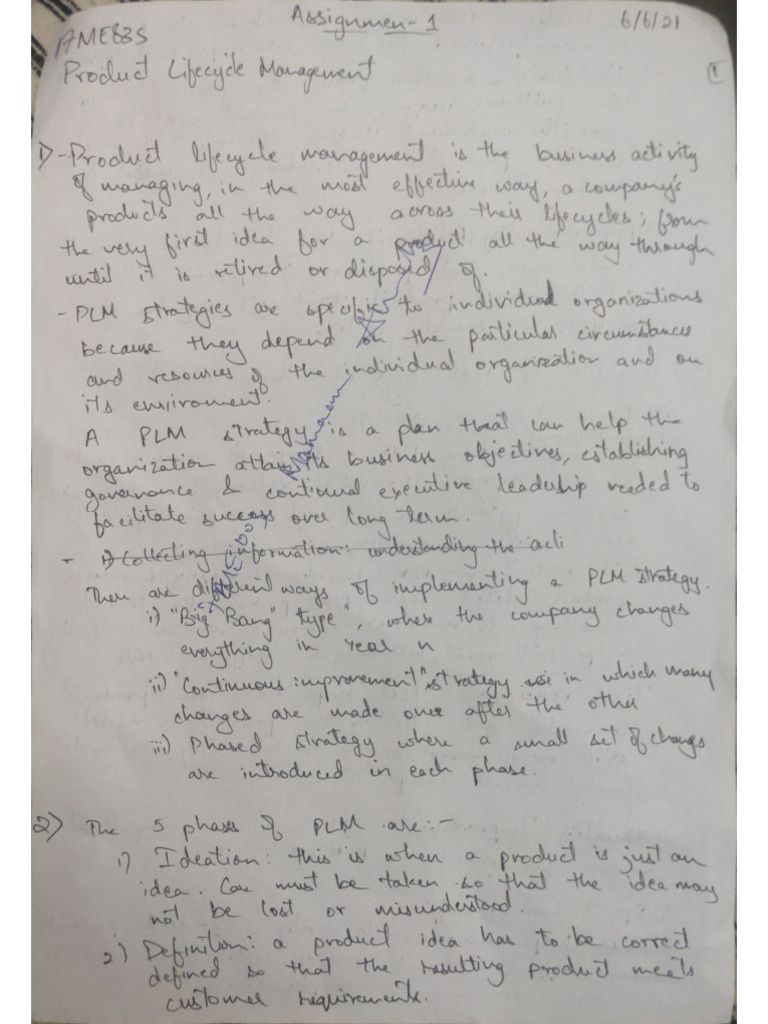 Assignmen-1
6/6/21
Product Lifecycle Management
1
1) - Product lifecycle management is the business activity
of managing, in the most effective way, a company's
products all the way across their lifecycles; from
the very first idea for a product all the way through
until it is retired or disposed of.
- PLM strategies are specific to individual organizations
because they depend on the particular circumstances
and resources of the individual organization and on
its enviroment.
A PLM strategy is a plan that can help the
organization attain its business objectives, establishing
governance & continual executive leadership needed to
facilitate success over long term.
- 1) Collecting information: understanding the acli
There are different ways of implementing a PLM strategy.
i) "Big Bang" type", where the company changes
everything in Year n
ii) "Continuous improvement" strategy in which many
changes are made one after the other
iii) Phased strategy where a small set of changes
are introduced in each phase.
2) The 5 phases of PLM are:-
1) Ideation: this is when a product is just an
idea. Care must be taken so that the idea may
not be lost or misunderstood.
2) Definition: a product idea has to be correct
defined so that the resulting product meets
customer requirements.